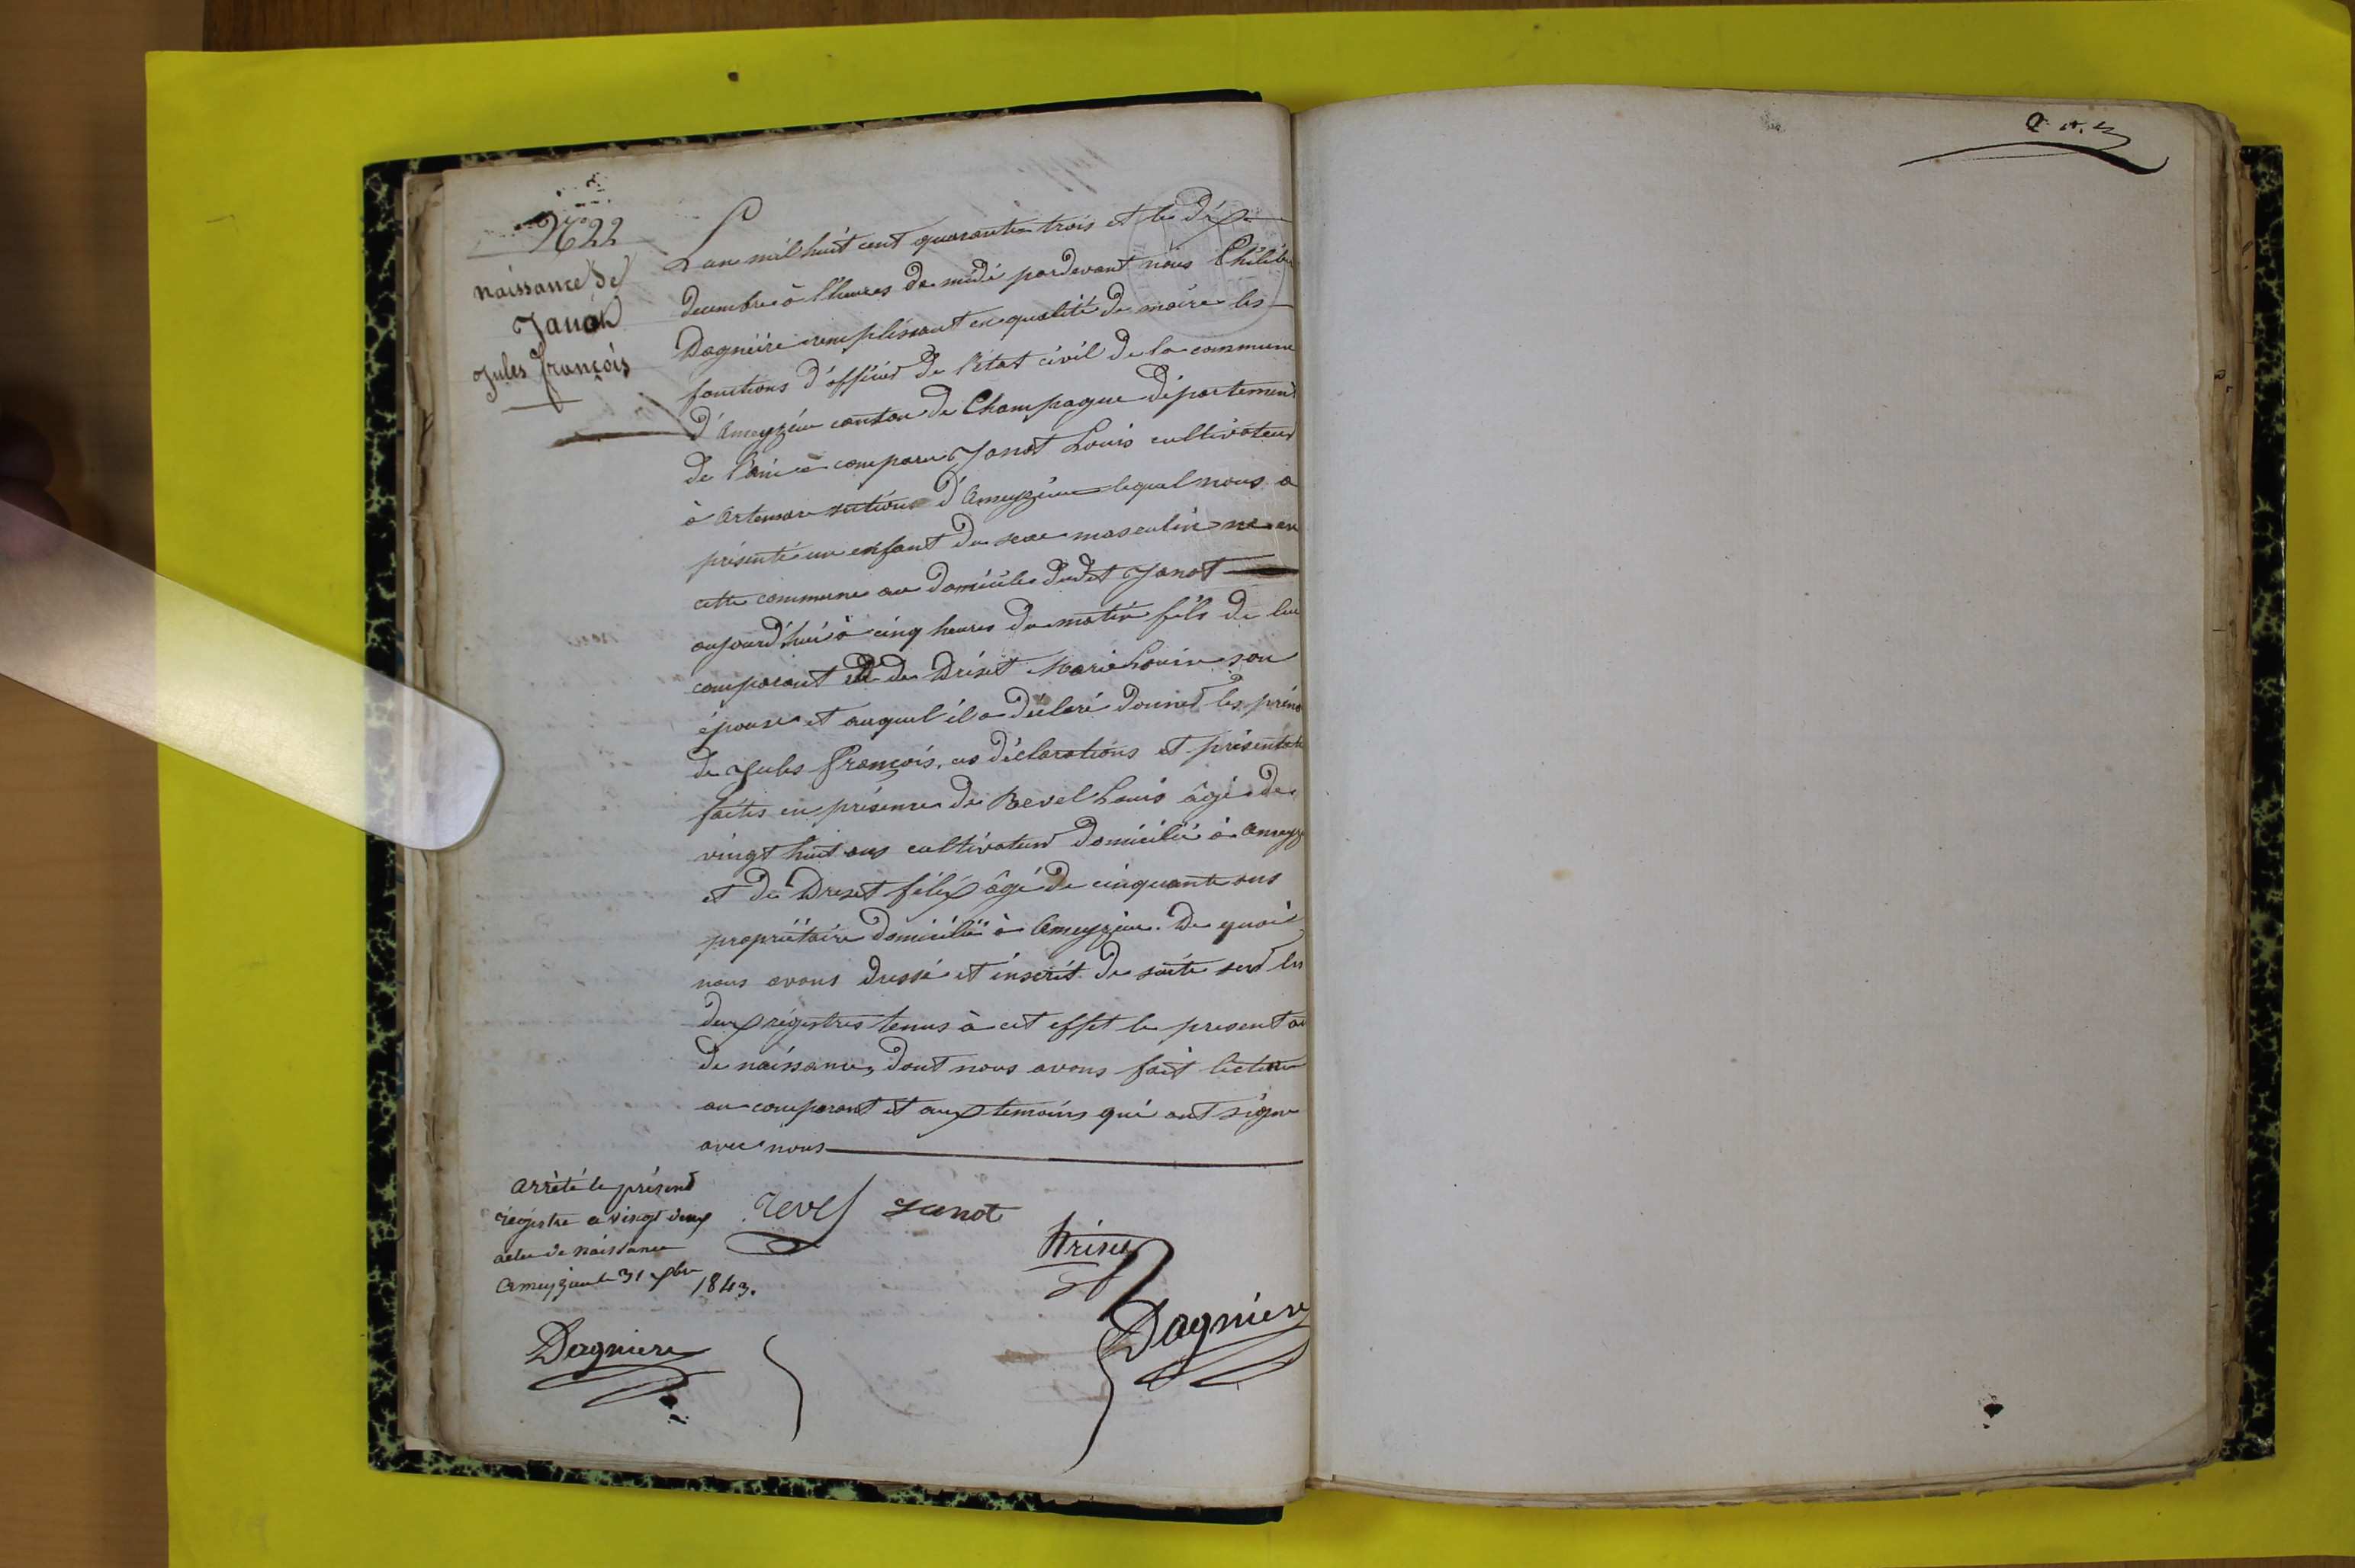 N° 22
naissance de
Janot
Jules françois
L'an mil huit cent quarante trois et le dix
decembre à l'heures de midi pardevant nous Philib
Dagniere remplissant en qualité de maire les
fonctions d'officier de l'état civil de la commune
d'Ameyzieu canton de Champagne département
de l'ain a comparu Janot Louis cultivateur
à Artemare section d'Ameyzieu lequel nous a
présenté un enfant du sexe masculin né en
cette commune au domicile dudit Janot
aujourd'hui à cinq heures du matin fils de lui
comparant et de Driset Marie Louise son
épouse et auquel il a déclaré donner les préno
de Jules François. ces déclarations et présentati
faites en présence de Revel Louis âgé de
vingt huit ans cultivateur domicilié à Ameyz
et de Driset félix âgé de cinquante ans
propriétaire domicilié à Ameyzieu. De quoi
nous avons dressé et inscrit de suite sur les
deux régistres tenus à cet effet le present ac
de naissance, dont nous avons fait lecture
au comparant et aux temoins qui ont signé
avec nous
arrèté le présent
régistre a vingt deux
actes de naissance
Ameyzieu le 31 xbre 1843.
revel Janot
Driset
Dagniere
Dagniere